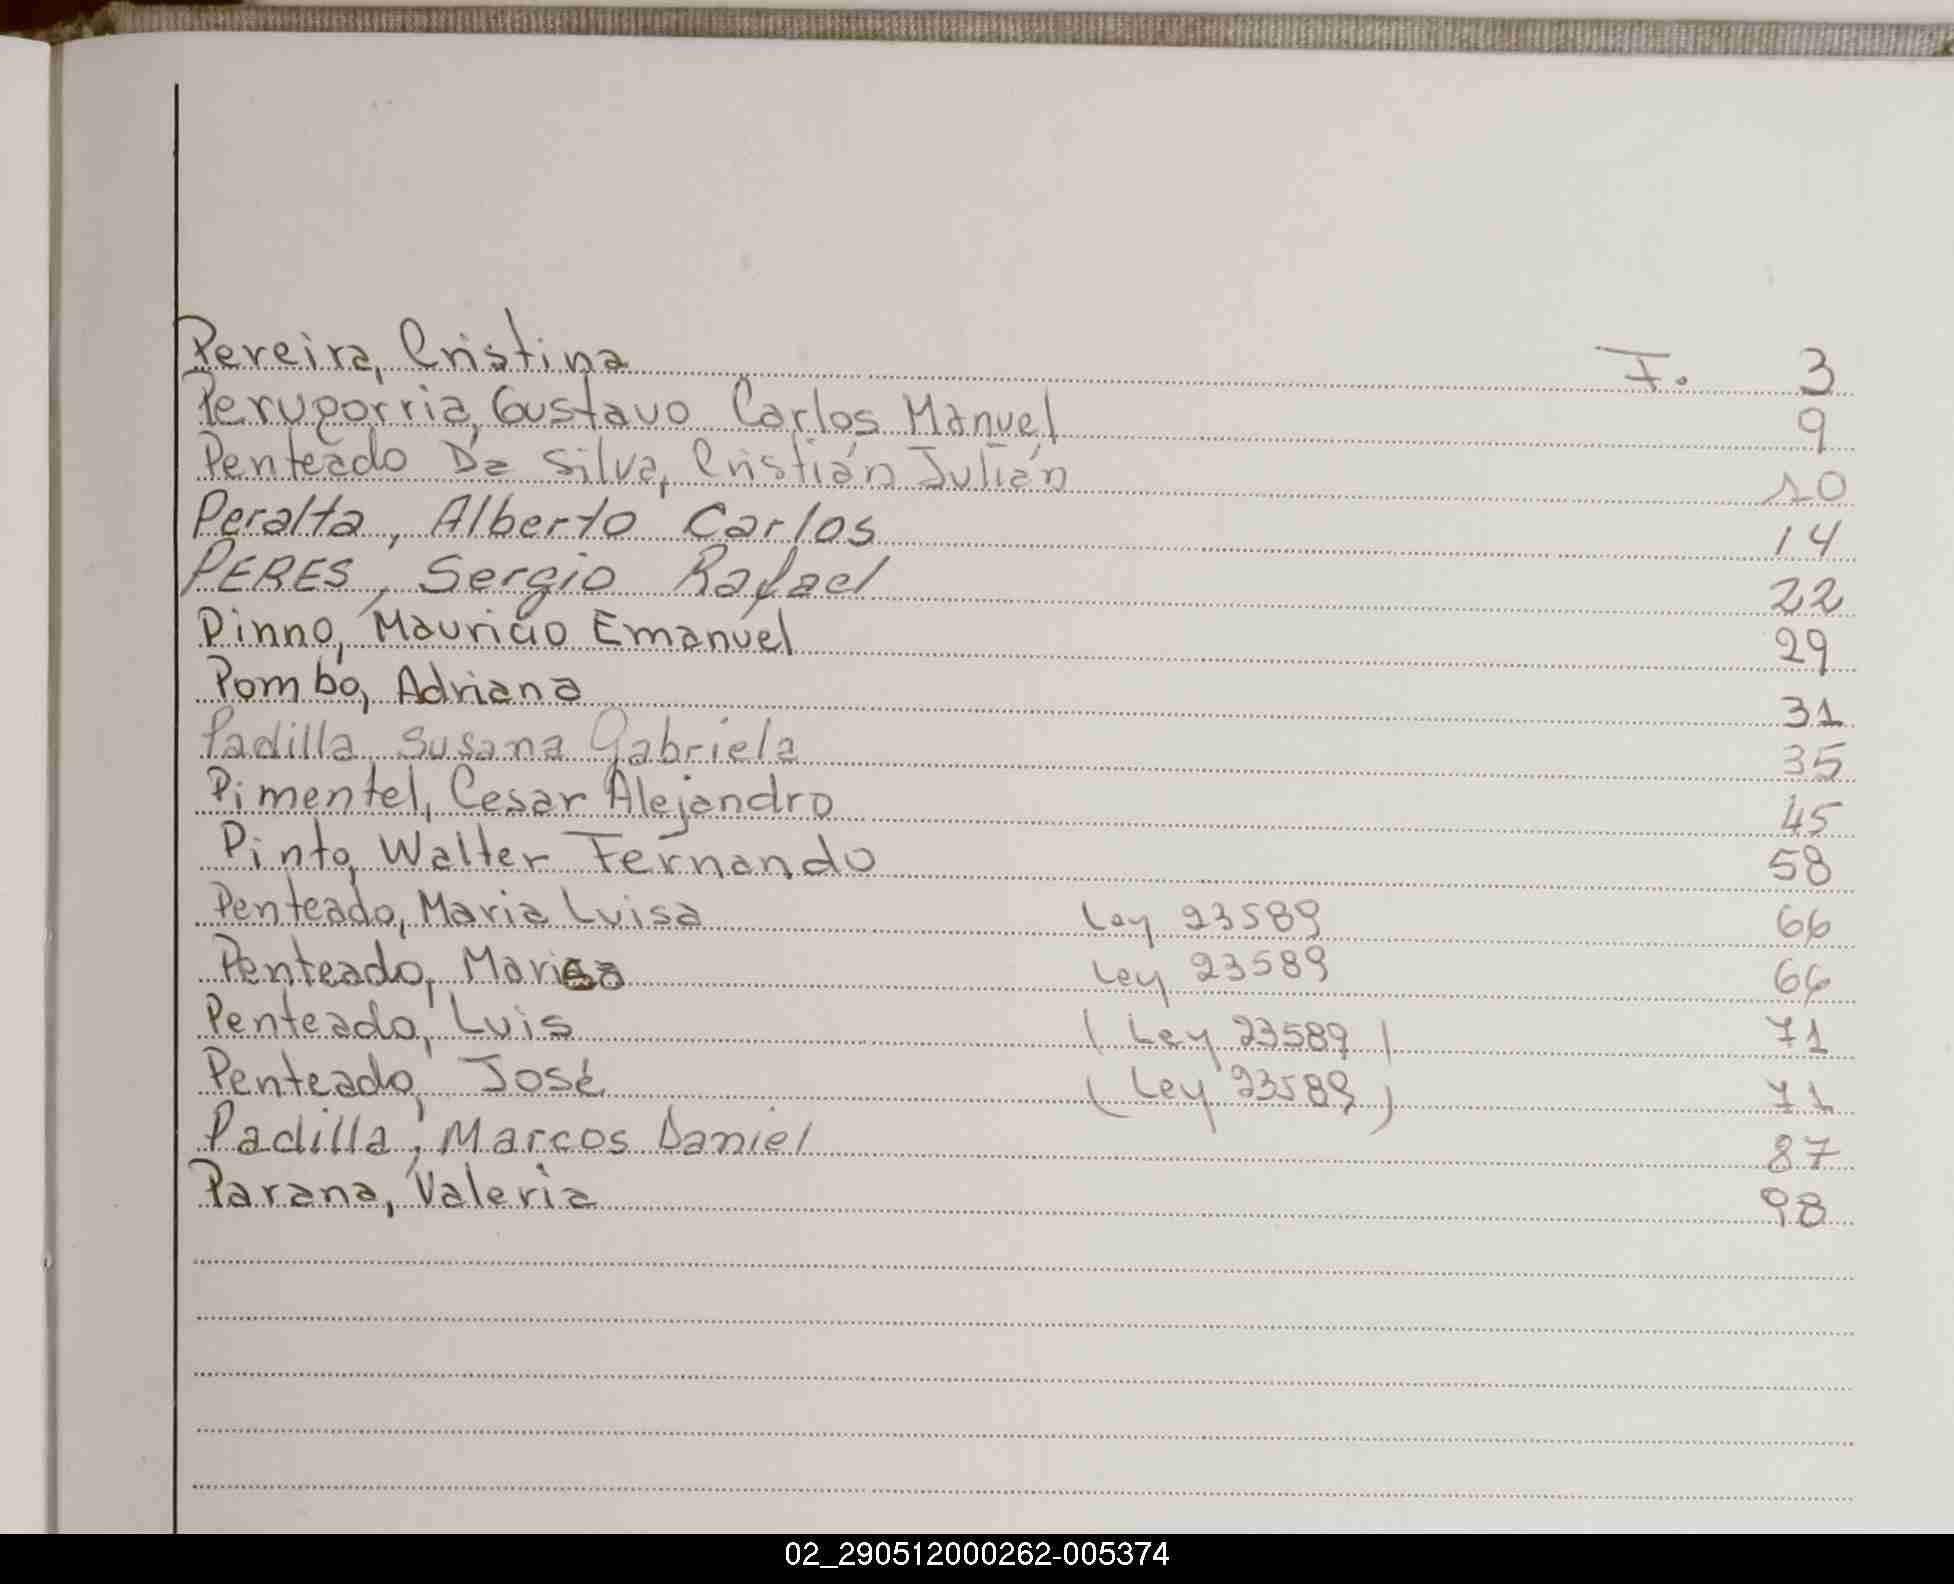 Pereira, Cristina F. 3
Perugorria, Gustavo Carlos Manuel 9
Penteado Da Silva, Cristián Julián 10
Peralta, Alberto Carlos 14
PERES, Sergio Rafael 22
Pinno, Mauricio Emanuel 29
Pombo, Adriana 31
Padilla, Susana Gabriela 35
Pimentel, Cesar Alejandro 45
Pinto, Walter Fernando 58
Penteado, Maria Luisa Ley 23589 66
Penteado, Ley 23589 66
Penteado, Luis (Ley 23589) 71
Penteado, José (Ley 23589) 71
Padilla, Marcos Daniel 87
Parana, Valeria 98
02_290512000262-005374